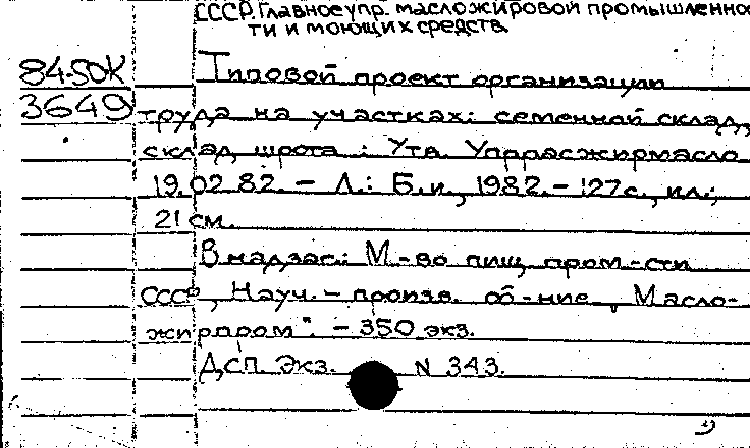 СССР. Главное упр. масложировой промышленнос
ти и моющих средств
84-50К
3649
Типовой проект организации
труда на участках: семенной склад,
склад шрота : Утв. Упррасжирмасло
19.02.82. - Л.: Б.и., 1982. - 127с., ил.;
21 см.
В надзаг.: М-во пищ. пром-сти
СССР, Науч.-произв. об-ние „Масло-
жирпром". - 350 экз.
ДСП. Экз. N 343.